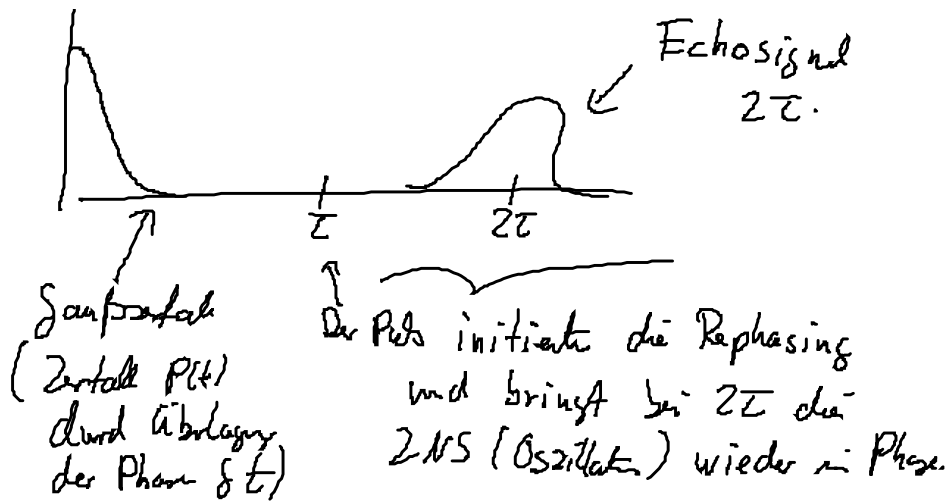 Echosignal
2τ.
τ
2τ
Gaußzerfall
(Zerfall P(t)
durch Überlagerung
der Phasen δt)
Der Puls initiiert die Rephasing
und bringt bei 2τ die
2NS (Oszillatoren) wieder in Phase.